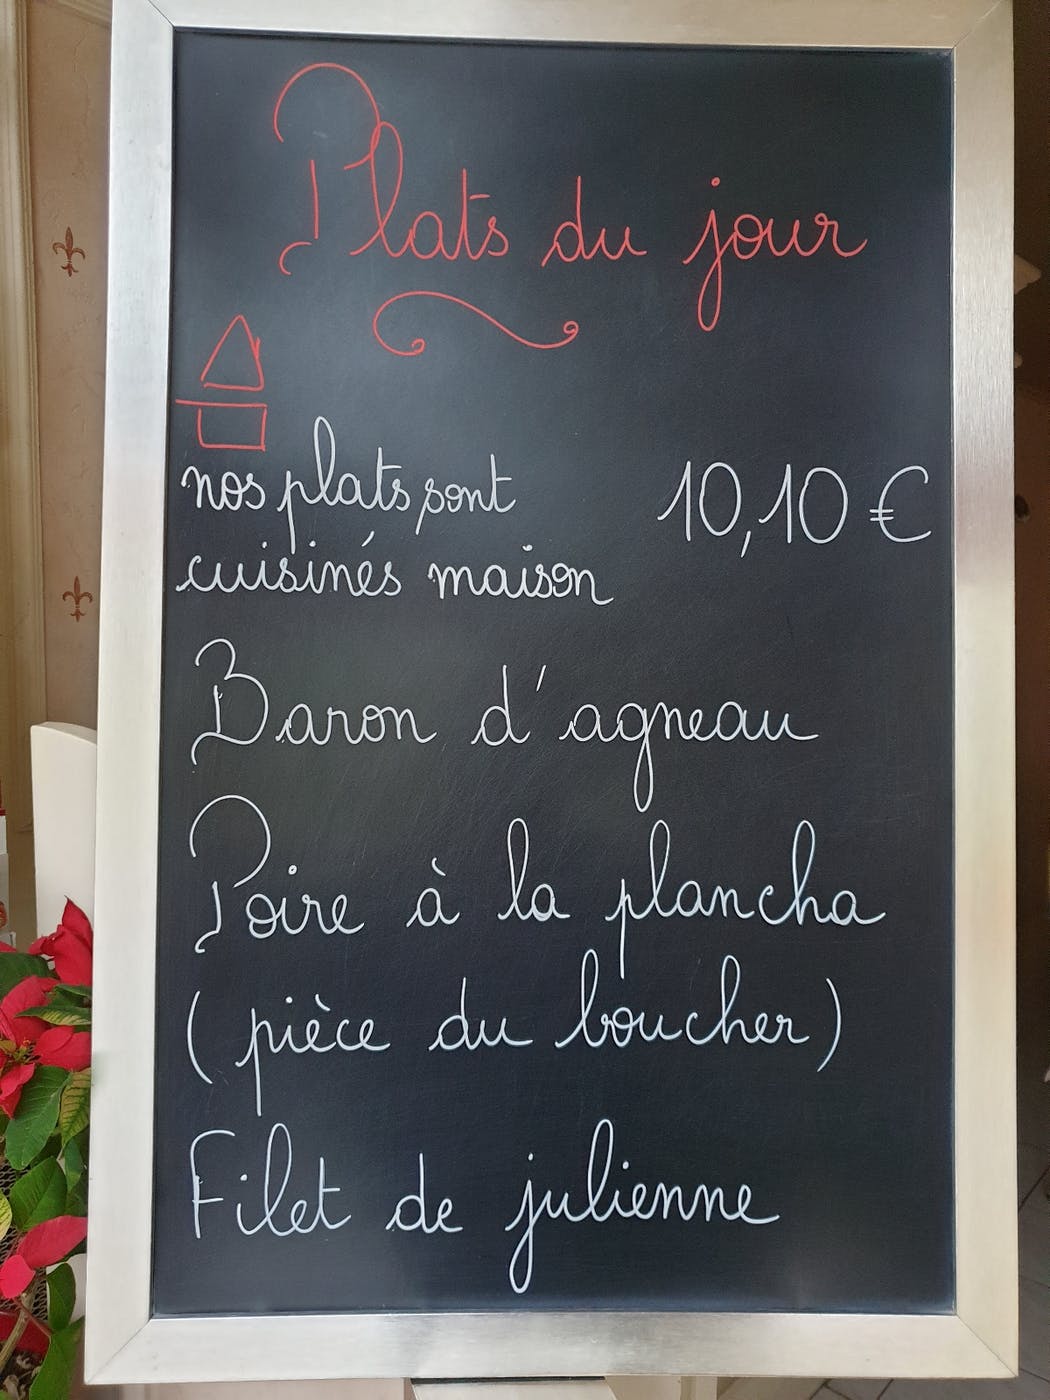 Plats du jour
nos plats sont 10,10 €
cuisinés maison
Baron d'agneau
Poire à la plancha
(pièce du boucher)
Filet de julienne